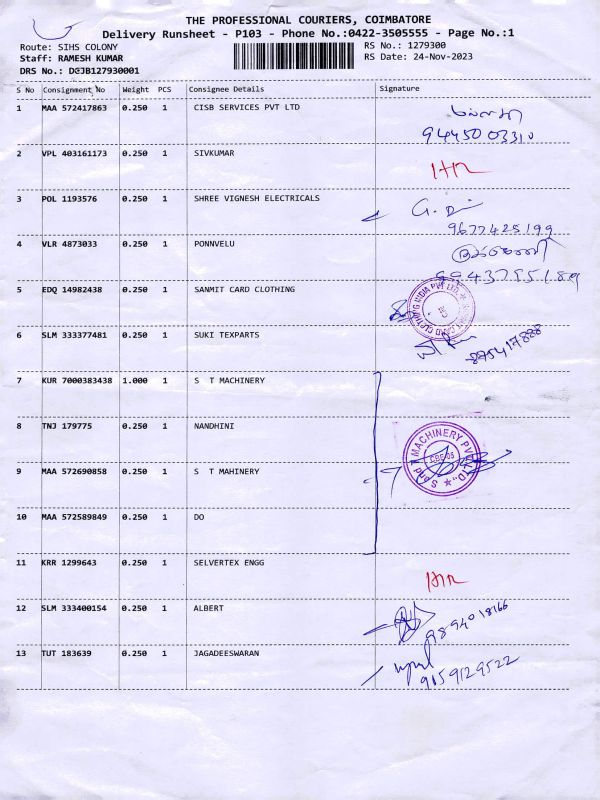 THE PROFESSIONAL COURIERS, COIMBATORE
Delivery Runsheet - P103 - Phone No.:0422-3505555 - Page No.:1
Route: SIHS COLONY
RS No.: 1279300
Staff: RAMESH KUMAR
RS Date: 24-Nov-2023
DRS No.: D@JB127930001
S No Consignment No Weight PCS Consignee Details Signature
1 MAA 572417863 0.250 1 CISB SERVICES PVT LTD
94450 03310
2 VPL 403161173 0.250 1 SIVKUMAR
3 POL 1193576 0.250 1 SHREE VIGNESH ELECTRICALS
9677425199
4 VLR 4873033 0.250 1 PONNVELU
9943755189
5 EDQ 14982438 0.250 1 SANMIT CARD CLOTHING
6 SLM 333377481 0.250 1 SUKI TEXPARTS
7 KUR 7000383438 1.000 1 S T MACHINERY
8 TNJ 179775 0.250 1 NANDHINI
S and T MACHINERY PVT LTD
9 MAA 572690858 0.250 1 S T MAHINERY
10 MAA 572589849 0.250 1 DO
11 KRR 1299643 0.250 1 SELVERTEX ENGG
12 SLM 333400154 0.250 1 ALBERT
9894018166
13 TUT 183639 0.250 1 JAGADEESWARAN
9159129522